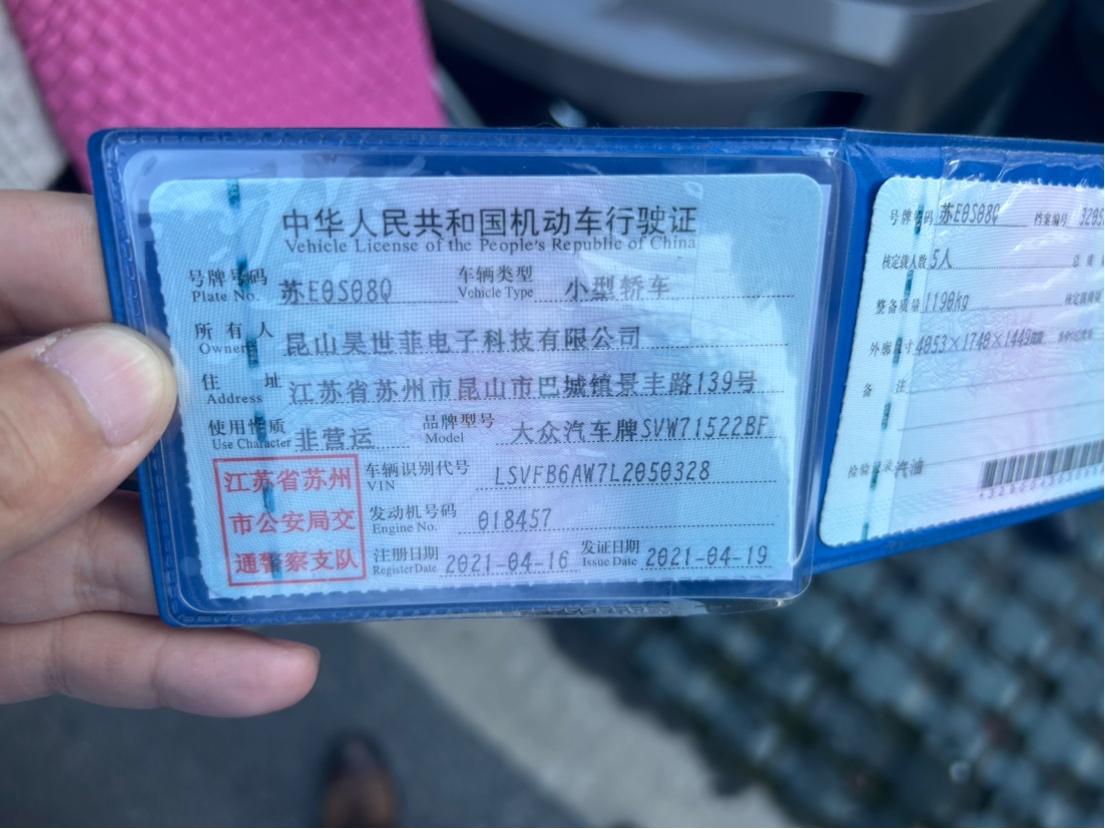 中华人民共和国机动车行驶证
Vehicle License of the People's Republic of China
号牌号码 苏E0S08Q 车辆类型 小型轿车
Plate No. Vehicle Type
所有人 昆山昊世菲电子科技有限公司
Owner
住址 江苏省苏州市昆山市巴城镇景丰路139号
Address
使用性质 非营运 品牌型号 大众汽车牌SVW71522BF
Use Character Model
江苏省苏州
市公安局交
通警察支队
车辆识别代号 LSVFB6AW7L2050328
VIN
发动机号码 018457
Engine No.
注册日期 2021-04-16 发证日期 2021-04-19
Register Date Issue Date
号牌号码 苏E0S08Q 档案编号 3205
核定载人数 5人
整备质量 1190kg
外廓尺寸 4053×1740×1449
备注
检验记录 汽油